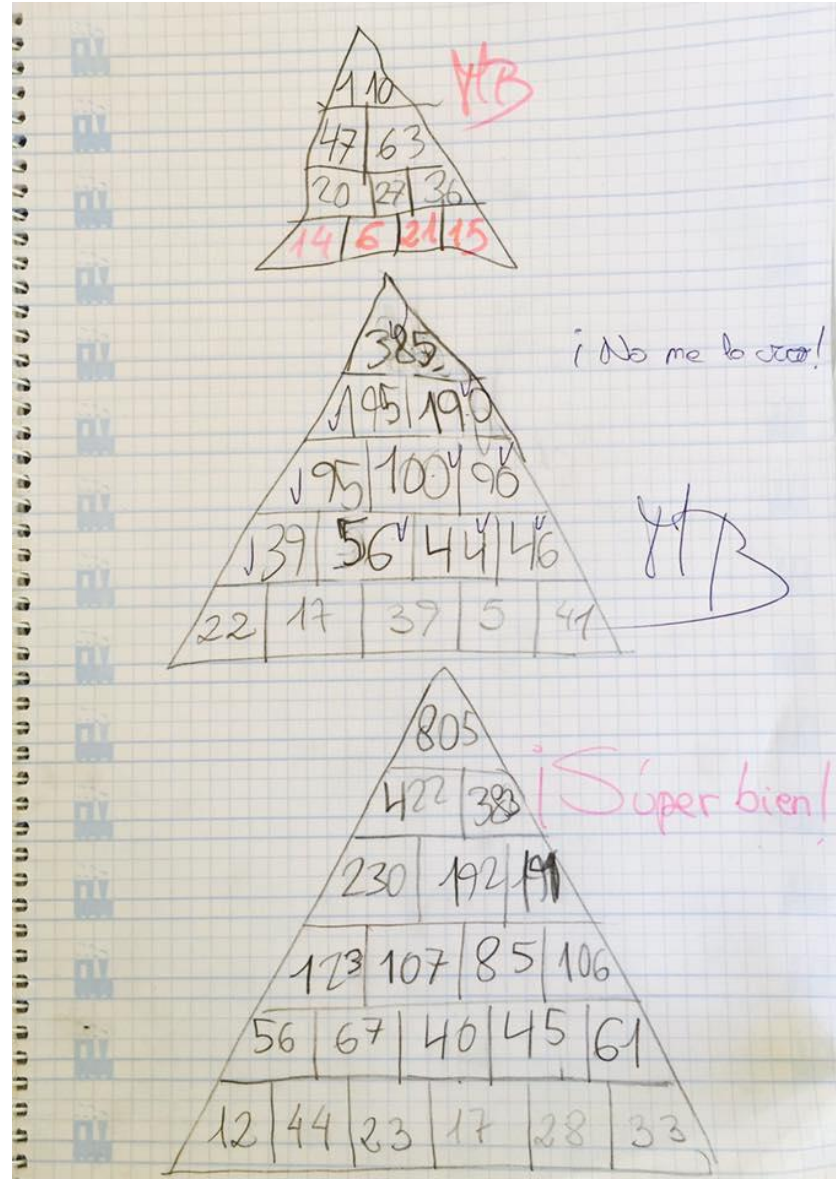 110
MB
47 63
20 27 36
14 6 21 15
385
¡No me lo creo!
195 190
95 100 90
39 56 44 46
MB
22 17 39 5 41
805
422 383
¡Súper bien!
230 192 191
123 107 85 106
56 67 40 45 61
12 44 23 17 28 33